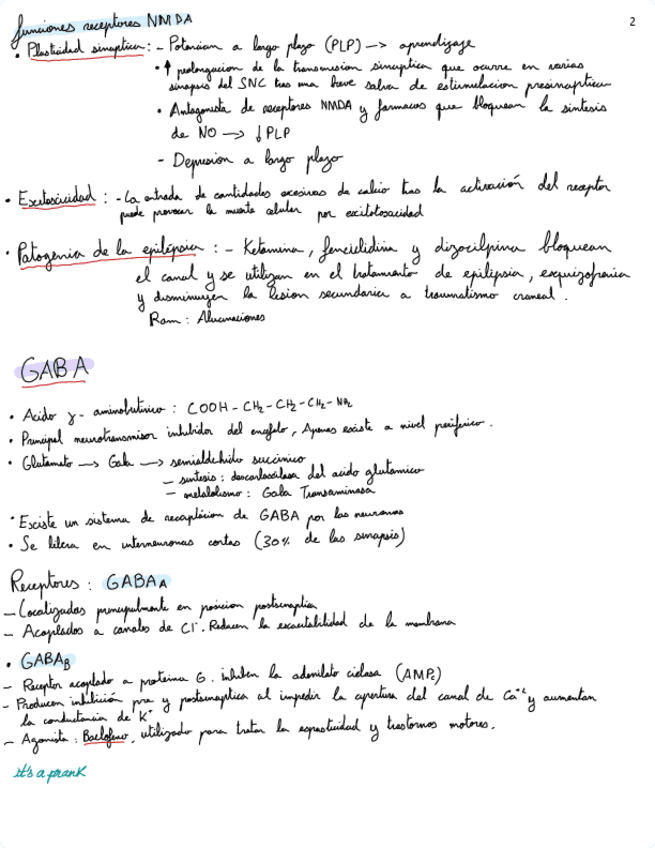 funciones receptores NMDA
2
• Plasticidad sinaptica: - Potencian a largo plazo (PLP) -> aprendizaje
• ↑ prolongacion de la transmision sinaptica que ocurre en varias
sinapsis del SNC tras una breve salva de estimulacion presinaptica
• Antagonista de receptores NMDA y farmacos que bloquean la sintesis
de NO -> ↓ PLP
- Depresion a largo plazo
• Excitoxicidad : - La entrada de cantidades excesivas de calcio tras la activación del receptor
puede provocar la muerte celular por excitotoxicidad
• Patogenia de la epilepsia : - Ketamina, fenciclidina y dizocilpina bloquean
el canal y se utilizan en el tratamiento de epilepsia, esquizofrenia
y disminuyen la lesion secundaria a traumatismo craneal.
Ram : Alucinaciones
GABA
• Acido γ- aminobutirico : COOH - CH2 - CH2 - CH2 - NH2
• Principal neurotransmisor inhibidor del encefalo, Apenas existe a nivel periferico.
• Glutamato -> Gaba -> semialdehido succinico
- sintesis : descarboxilasa del acido glutamico
- metabolismo : Gaba Transaminasa
• Existe un sistema de recaptacion de GABA por las neuronas
• Se libera en interneuronas cortas (30% de las sinapsis)
Receptores : GABAA
- Localizados principalmente en posicion postsinaptica
- Acoplados a canales de Cl-. Reducen la excitabilidad de la membrana
• GABAB
- Receptor acoplado a proteina G. inhiben la adenilato ciclasa (AMPc)
- Producen inhibición pre y postsinaptica al impedir la apertura del canal de Ca+2 y aumentan
la conductancia de K+
- Agonista : Baclofeno, utilizado para tratar la espasticidad y trastornos motores.
it's a prank